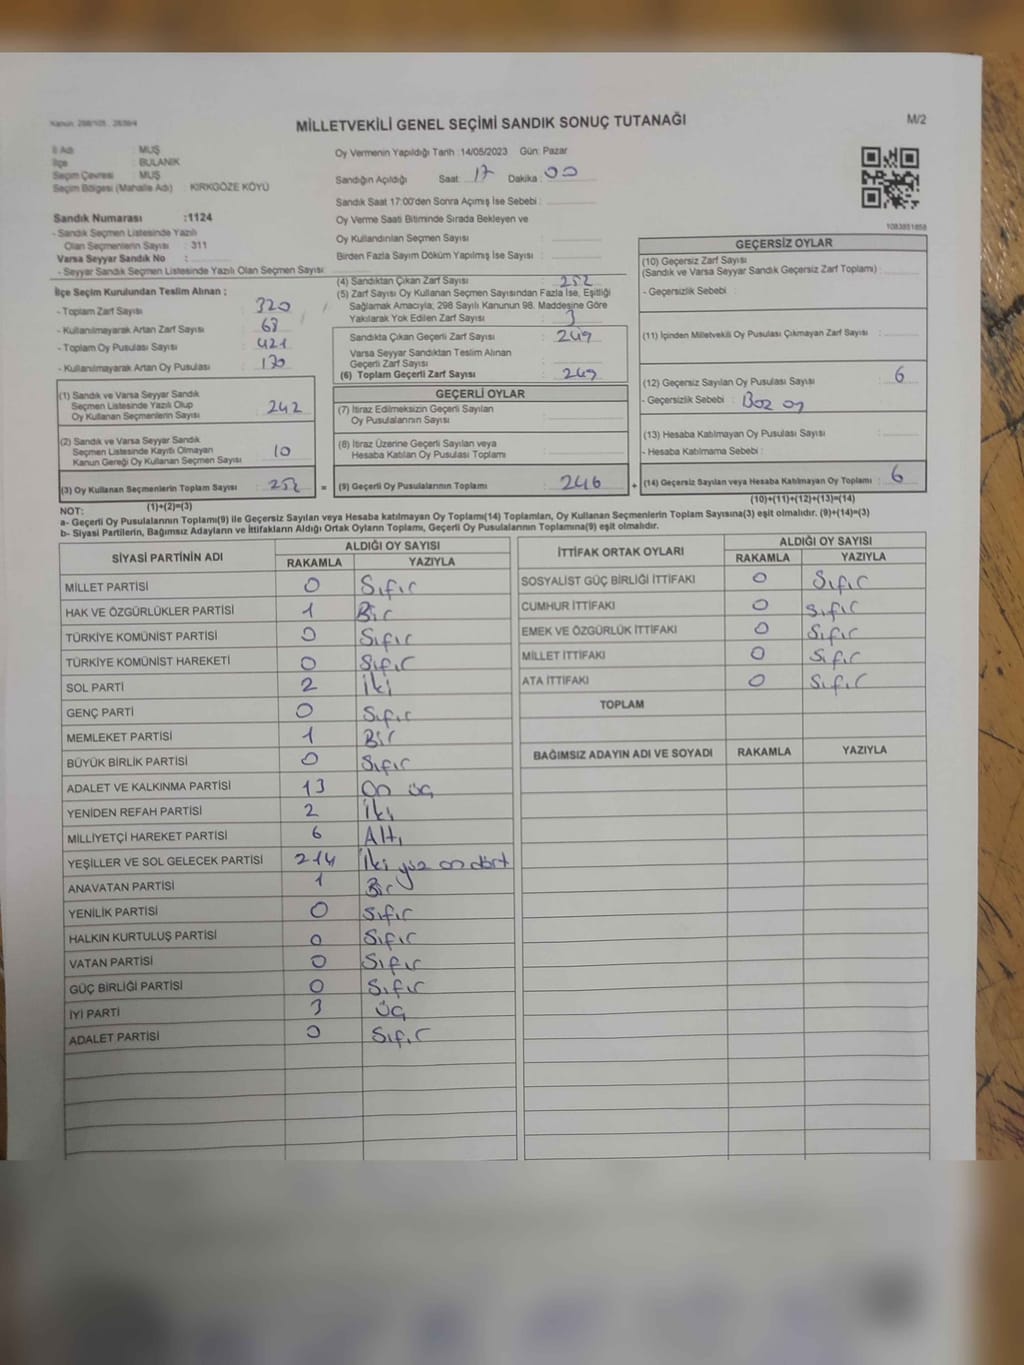 MİLLETVEKİLİ GENEL SEÇİMİ SANDIK SONUÇ TUTANAĞI
M/2
İl Adı : MUŞ
İlçe : BULANIK
Seçim Çevresi : MUŞ
Seçim Bölgesi (Mahalle Adı) : KIRKGÖZE KÖYÜ
Sandık Numarası :1124
- Sandık Seçmen Listesinde Yazılı
Olan Seçmenlerin Sayısı : 311
Varsa Seyyar Sandık No :
- Seyyar Sandık Seçmen Listesinde Yazılı Olan Seçmen Sayısı
Oy Vermenin Yapıldığı Tarih :14/05/2023 Gün: Pazar
Sandığın Açıldığı Saat: 17 Dakika : 00
Sandık Saat 17:00'den Sonra Açımış İse Sebebi :
Oy Verme Saati Bitiminde Sırada Bekleyen ve
Oy Kullandırılan Seçmen Sayısı :
Birden Fazla Sayım Döküm Yapılmış İse Sayısı :
1083851858
İlçe Seçim Kurulundan Teslim Alınan ;
- Toplam Zarf Sayısı : 320
- Kullanılmayarak Artan Zarf Sayısı : 68
- Toplam Oy Pusulası Sayısı : 421
- Kullanılmayarak Artan Oy Pusulası : 170
(1) Sandık ve Varsa Seyyar Sandık
Seçmen Listesinde Yazılı Olup
Oy Kullanan Seçmenlerin Sayısı : 242
(2) Sandık ve Varsa Seyyar Sandık
Seçmen Listesinde Kayıtlı Olmayan
Kanun Gereği Oy Kullanan Seçmen Sayısı : 10
(3) Oy Kullanan Seçmenlerin Toplam Sayısı : 252
(1)+(2)=(3)
(4) Sandıktan Çıkan Zarf Sayısı : 252
(5) Zarf Sayısı Oy Kullanan Seçmen Sayısından Fazla İse, Eşitliği
Sağlamak Amacıyla; 298 Sayılı Kanunun 98. Maddesine Göre
Yakılarak Yok Edilen Zarf Sayısı : 3
Sandıkta Çıkan Geçerli Zarf Sayısı : 249
Varsa Seyyar Sandıktan Teslim Alınan
Geçerli Zarf Sayısı :
(6) Toplam Geçerli Zarf Sayısı : 249
GEÇERLİ OYLAR
(7) İtiraz Edilmeksizin Geçerli Sayılan
Oy Pusulalarının Sayısı :
(8) İtiraz Üzerine Geçerli Sayılan veya
Hesaba Katılan Oy Pusulası Toplamı :
= (9) Geçerli Oy Pusulalarının Toplamı : 246
GEÇERSİZ OYLAR
(10) Geçersiz Zarf Sayısı
(Sandık ve Varsa Seyyar Sandık Geçersiz Zarf Toplamı) :
- Geçersizlik Sebebi :
(11) İçinden Milletvekili Oy Pusulası Çıkmayan Zarf Sayısı :
(12) Geçersiz Sayılan Oy Pusulası Sayısı : 6
- Geçersizlik Sebebi : Boz oy
(13) Hesaba Katılmayan Oy Pusulası Sayısı :
- Hesaba Katılmama Sebebi :
+ (14) Geçersiz Sayılan veya Hesaba Katılmayan Oy Toplamı : 6
(10)+(11)+(12)+(13)=(14)
NOT:
a- Geçerli Oy Pusulalarının Toplamı(9) ile Geçersiz Sayılan veya Hesaba katılmayan Oy Toplamı(14) Toplamları, Oy Kullanan Seçmenlerin Toplam Sayısına(3) eşit olmalıdır. (9)+(14)=(3)
b- Siyasi Partilerin, Bağımsız Adayların ve İttifakların Aldığı Ortak Oyların Toplamı, Geçerli Oy Pusulalarının Toplamına(9) eşit olmalıdır.
SİYASİ PARTİNİN ADI ALDIĞI OY SAYISI
RAKAMLA YAZIYLA
MİLLET PARTİSİ 0 Sıfır
HAK VE ÖZGÜRLÜKLER PARTİSİ 1 Bir
TÜRKİYE KOMÜNİST PARTİSİ 0 Sıfır
TÜRKİYE KOMÜNİST HAREKETİ 0 Sıfır
SOL PARTİ 2 İki
GENÇ PARTİ 0 Sıfır
MEMLEKET PARTİSİ 1 Bir
BÜYÜK BİRLİK PARTİSİ 0 Sıfır
ADALET VE KALKINMA PARTİSİ 13 On üç
YENİDEN REFAH PARTİSİ 2 İki
MİLLİYETÇİ HAREKET PARTİSİ 6 Altı
YEŞİLLER VE SOL GELECEK PARTİSİ 214 İki yüz on dört
ANAVATAN PARTİSİ 1 Bir
YENİLİK PARTİSİ 0 Sıfır
HALKIN KURTULUŞ PARTİSİ 0 Sıfır
VATAN PARTİSİ 0 Sıfır
GÜÇ BİRLİĞİ PARTİSİ 0 Sıfır
İYİ PARTİ 3 üç
ADALET PARTİSİ 0 Sıfır
İTTİFAK ORTAK OYLARI ALDIĞI OY SAYISI
RAKAMLA YAZIYLA
SOSYALİST GÜÇ BİRLİĞİ İTTİFAKI 0 Sıfır
CUMHUR İTTİFAKI 0 Sıfır
EMEK VE ÖZGÜRLÜK İTTİFAKI 0 Sıfır
MİLLET İTTİFAKI 0 Sıfır
ATA İTTİFAKI 0 Sıfır
TOPLAM
BAĞIMSIZ ADAYIN ADI VE SOYADI RAKAMLA YAZIYLA